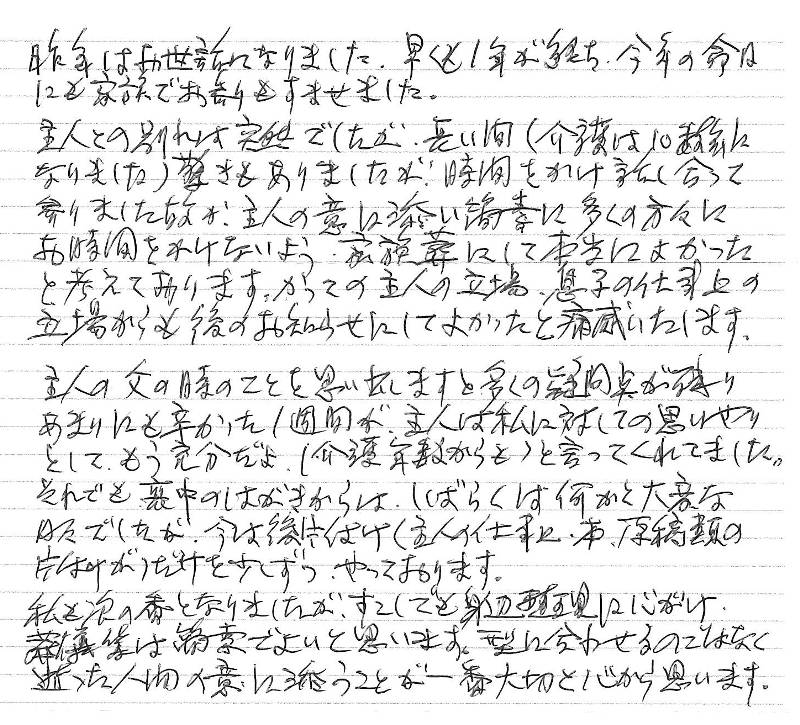 昨年はお世話になりました。早くも1年が経ち、今年の命日
にも家族でお参りもすませました。
主人との別れは突然でしたが、長い間(介護は10数年に
なりました)驚きもありましたが、時間をかけ話し合って
参りました故か、主人の意に添い簡素に多くの方々に
お時間をかけないよう、家族葬にして本当によかった
と考えております。かつての主人の立場、息子の仕事上の
立場からも後のお知らせにしてよかったと痛感いたします。
主人の父の時のことを思い出しますと多くの疑問点が残り
あまりにも辛かった1週間が、主人は私に対しての思いやり
として、もう充分だよ、(介護年数からも)と言ってくれてました。
それでも喪中のはがきからは、しばらくは何かと大変な
日々でしたが、今は後片付け(主人の仕事上・本、原稿類の
片付け)だけを少しずつ、やっております。
私も次の番となりましたが、すこしでも身辺整理に心がけ、
葬儀等は簡素でよいと思います。型に合わせるのではなく
逝った人間の意に添うことが一番大切と心から思います。